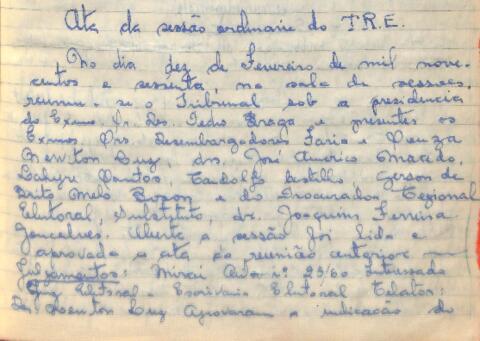 Ata da sessão ordinaria do T.R.E.
No dia dez de Fevereiro de mil nove-
centos e sessenta, na sala de sessões,
reuniu-se o Tribunal sob a presidencia
do Exmo. Sr. Des. Pedro Braga e presentes os
Exmos. Srs. Desembargadores Faria e Souza
Newton Luz, drs. José Americo Macedo,
Santos, Castello Gerson de
Melo Boson e do Procurador Regional
Eleitoral, Substituto, dr. Joaquim Ferreira
Goncalves. Aberta a sessão foi lida e
aprovada a ata da reunião anterior.
Julgamentos: Mirai n.º 25/60 Interessado
Juiz Eleitoral - Escrivania Eleitoral Relator:
Des. Newton Luz Aprovaram a indicação do